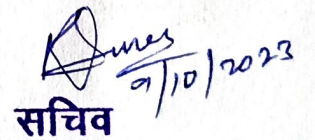 9/10/2023
सचिव